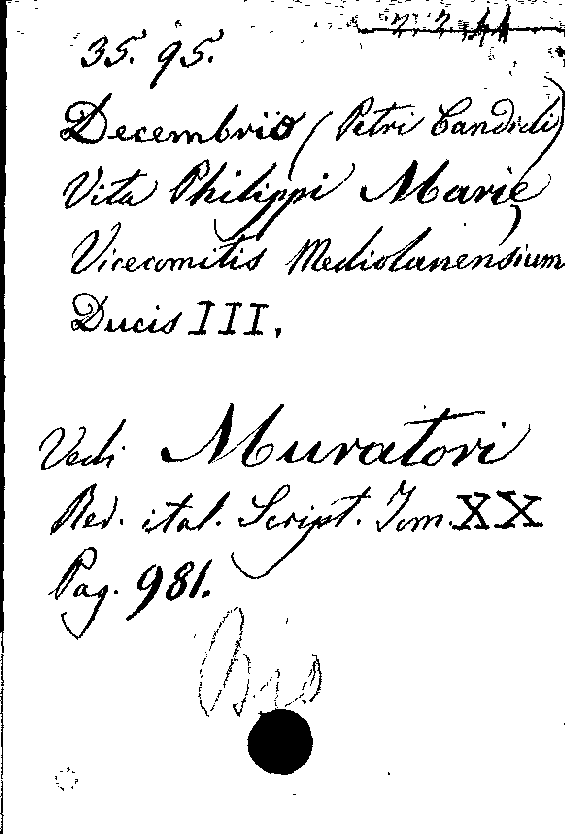 2. 2. 44
35. 95.
Decembrio (Petri Candidi)
Vita Philippi Marie
Vicecomitis Mediolanensium
Ducis III.
Vedi Muratori
Rer. ital. Script. Tom. XX
Pag. 981.
Bis